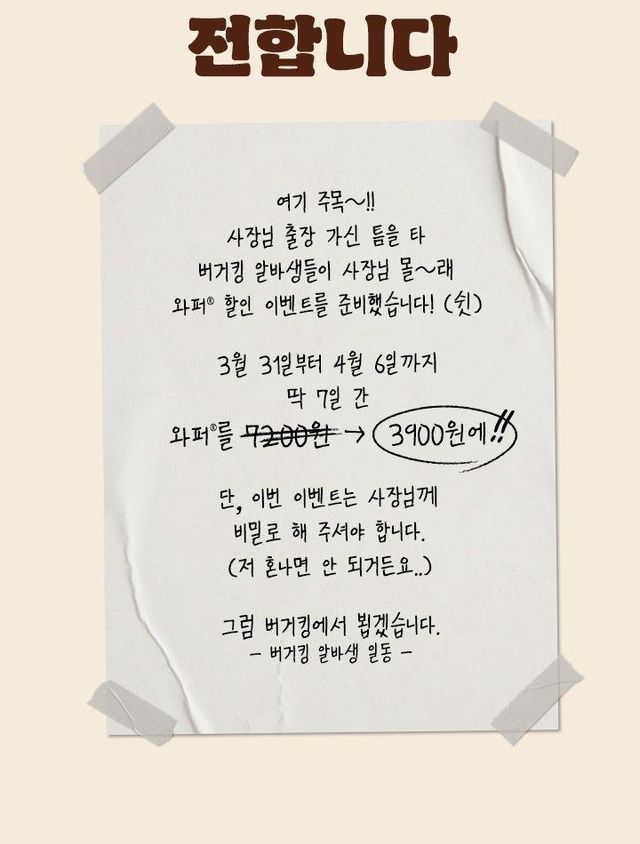 전합니다
여기 주목~!!
사장님 출장 가신 틈을 타
버거킹 알바생들이 사장님 몰~래
와퍼® 할인 이벤트를 준비했습니다! (쉿)
3월 31일부터 4월 6일까지
딱 7일 간
와퍼®를 7200원 → 3900원에!!
단, 이번 이벤트는 사장님께
비밀로 해 주셔야 합니다.
(저 혼나면 안 되거든요..)
그럼 버거킹에서 뵙겠습니다.
- 버거킹 알바생 일동 -